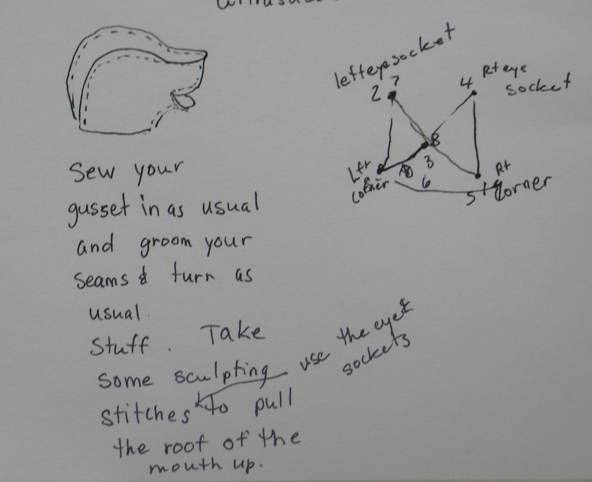 left eye socket
2 7
4 Rt eye
socket
8
3
6
Lft
corner
Rt
5 corner
Sew your
gusset in as usual
and groom your
seams & turn as
usual.
Stuff. Take
some sculpting
stitches to pull
the roof of the
mouth up.
use the eye
sockets